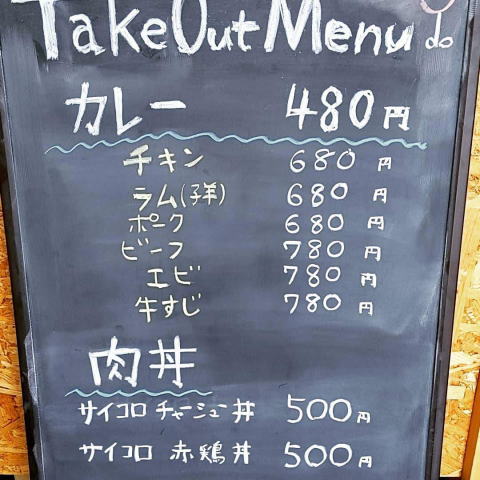 TakeOut Menu
カレー 480円
チキン 680 円
ラム(子羊) 680 円
ポーク 680 円
ビーフ 780 円
エビ 780 円
牛すじ 780 円
肉丼
サイコロ チャーシュー丼 500円
サイコロ 赤鶏丼 500円